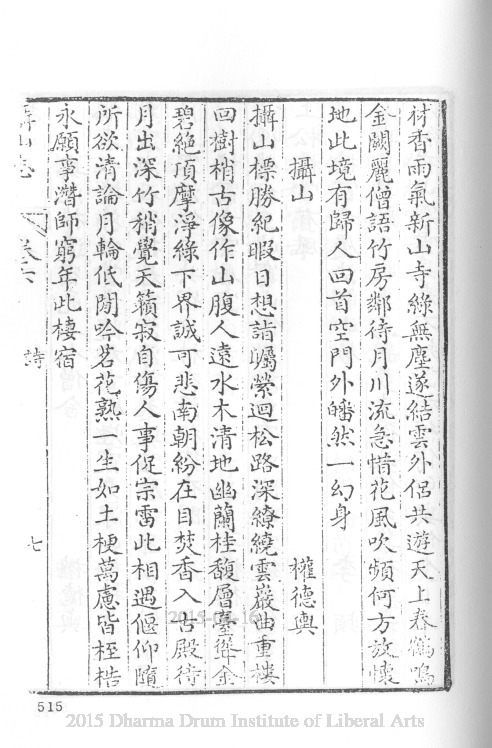 材香雨氣新山寺綠無塵遂結雲外侶共遊天上春鶴鳴
金闕麗僧語竹房鄰待月川流急惜花風吹頻何方放懷
地此境有歸人回首空門外皤然一幻身
攝山
權德輿
攝山標勝紀暇日想詣矚縈迴松路深繚繞雲巖曲重樓
回樹杪古像作山腹人遠水木清地幽蘭桂馥層臺聳金
碧絕頂摩淨綠下界誠可悲南朝紛在目焚香入古殿待
月出深竹稍覺天籟寂自傷人事促宗雷此相遇偃仰隨
所欲清論月輪低閒吟茗花熟一生如土梗萬慮皆桎梏
永願事潛師窮年此棲宿
山志
卷六
詩
七
515
2015 Dharma Drum Institute of Liberal Arts